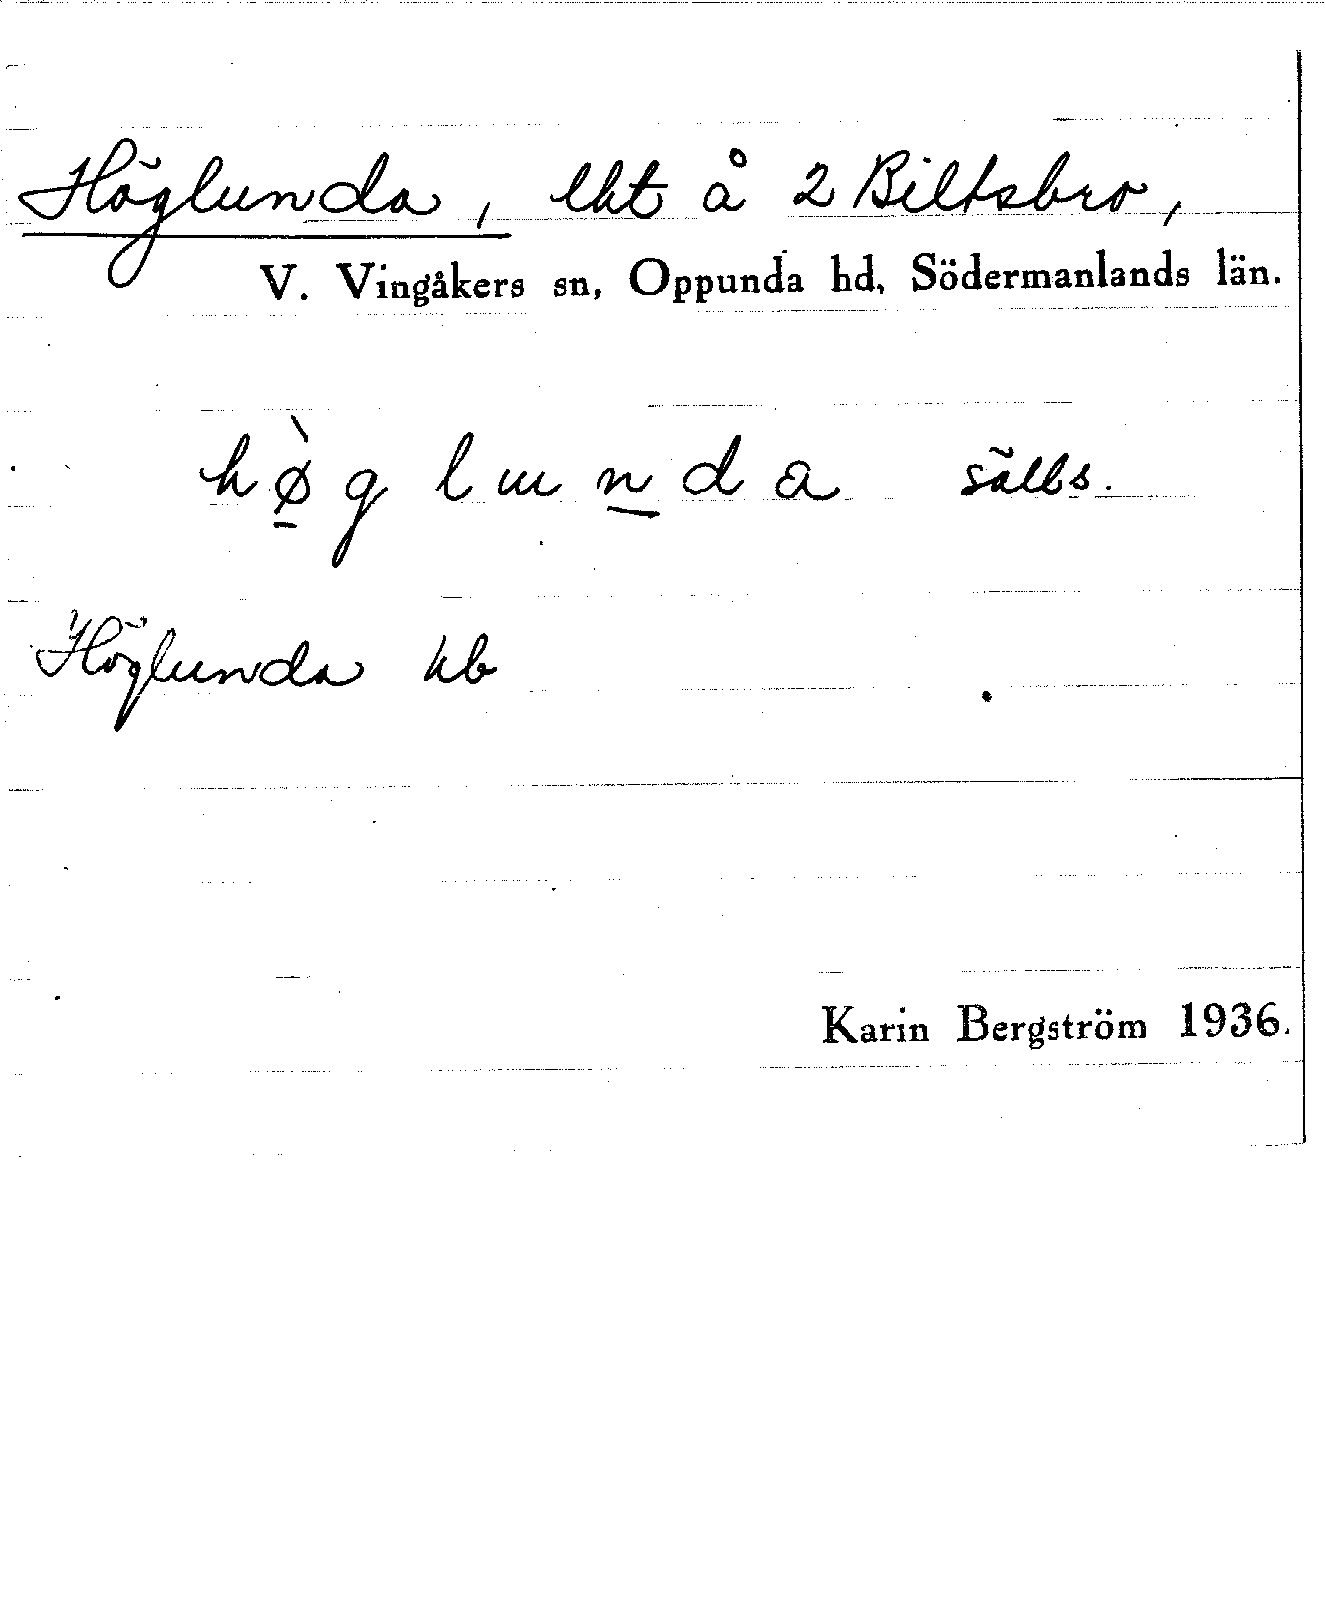 Höglunda, lht å 2 Biltsbro,
V. Vingåkers sn, Oppunda hd, Södermanlands län.
hø̀g lunda sälls.
Höglunda kb
Karin Bergström 1936.